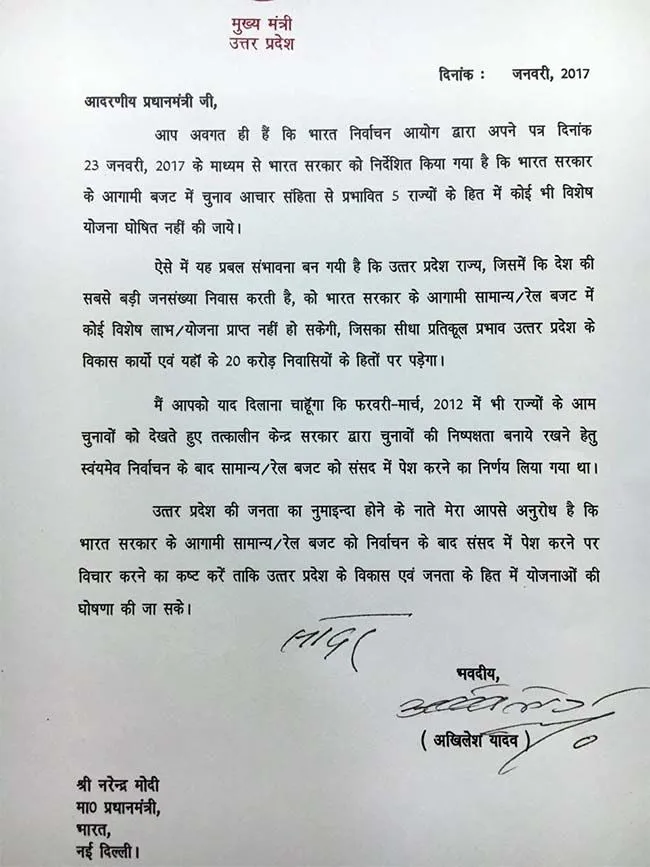 मुख्य मंत्री
उत्तर प्रदेश
दिनांक : जनवरी, 2017
आदरणीय प्रधानमंत्री जी,
आप अवगत ही हैं कि भारत निर्वाचन आयोग द्वारा अपने पत्र दिनांक
23 जनवरी, 2017 के माध्यम से भारत सरकार को निर्देशित किया गया है कि भारत सरकार
के आगामी बजट में चुनाव आचार संहिता से प्रभावित 5 राज्यों के हित में कोई भी विशेष
योजना घोषित नहीं की जाये।
ऐसे में यह प्रबल संभावना बन गयी है कि उत्तर प्रदेश राज्य, जिसमें कि देश की
सबसे बड़ी जनसंख्या निवास करती है, को भारत सरकार के आगामी सामान्य/रेल बजट में
कोई विशेष लाभ/योजना प्राप्त नहीं हो सकेगी, जिसका सीधा प्रतिकूल प्रभाव उत्तर प्रदेश के
विकास कार्यो एवं यहाँ के 20 करोड़ निवासियों के हितों पर पड़ेगा।
मैं आपको याद दिलाना चाहूँगा कि फरवरी-मार्च, 2012 में भी राज्यों के आम
चुनावों को देखते हुए तत्कालीन केन्द्र सरकार द्वारा चुनावों की निष्पक्षता बनाये रखने हेतु
स्वंयमेव निर्वाचन के बाद सामान्य/रेल बजट को संसद में पेश करने का निर्णय लिया गया था।
उत्तर प्रदेश की जनता का नुमाइन्दा होने के नाते मेरा आपसे अनुरोध है कि
भारत सरकार के आगामी सामान्य/रेल बजट को निर्वाचन के बाद संसद में पेश करने पर
विचार करने का कष्ट करें ताकि उत्तर प्रदेश के विकास एवं जनता के हित में योजनाओं की
घोषणा की जा सके।
सादर
भवदीय,
( अखिलेश यादव )
श्री नरेन्द्र मोदी
मा0 प्रधानमंत्री,
भारत,
नई दिल्ली।